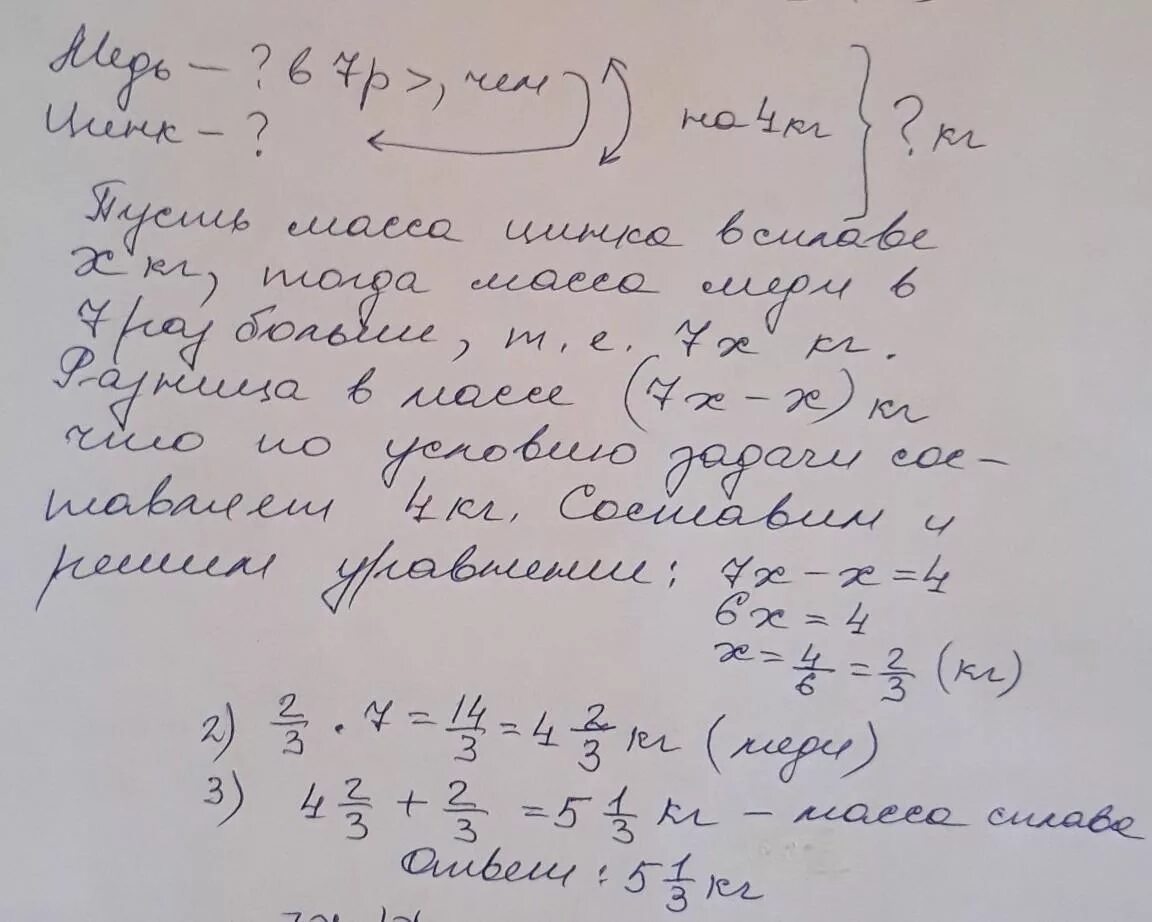 Медь — ? в 7р >, чем
на 4кг
? кг
Цинк — ?
Пусть масса цинка в сплаве
x кг, тогда масса меди в
7 раз больше, т. е. 7x кг.
Разница в массе (7x − x) кг
что по условию задачи сос-
тавляет 4кг. Составим и
решим уравнение: 7x − x = 4
6x = 4
x = 4/6 = 2/3 (кг)
2) 2/3 · 7 = 14/3 = 4 2/3 кг (меди)
3) 4 2/3 + 2/3 = 5 1/3 кг — масса сплава
Ответ: 5 1/3 кг